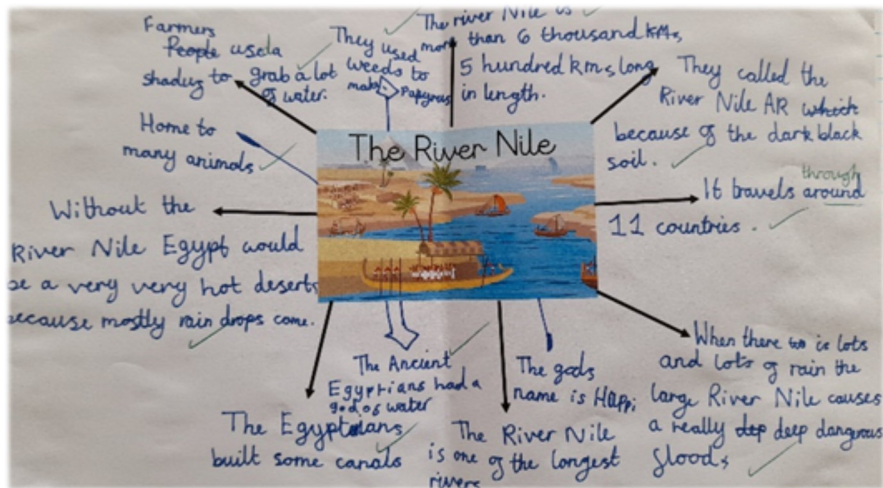 The River Nile
Farmers
People use a
shaduf to grab a lot
of water.
They used
weeds to
make
Papyrus
The river Nile is
more than 6 thousand kms,
5 hundred kms, long
in length.
They called the
River Nile AR which
because of the dark black
soil.
through
It travels around
11 countries.
When there is lots
and lots of rain the
large River Nile causes
a really dep deep dangerous
floods
The gods
name is Hapi
The River Nile
is one of the longest
rivers
The Ancient
Egyptians had a
god of water
The Egyptians
built some canals
Without the
River Nile Egypt would
be a very very hot desert
because mostly rain drops come.
Home to
many animals